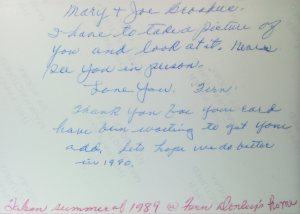 Mary & Joe
I have to take a picture of
you and look at it. Never
see you in person.
Love you. Fern.
Thank you Joe your card
have been waiting to get your
add. Lets hope we do better
in 1990.
Taken summer of 1989 @ Fern Donley's home